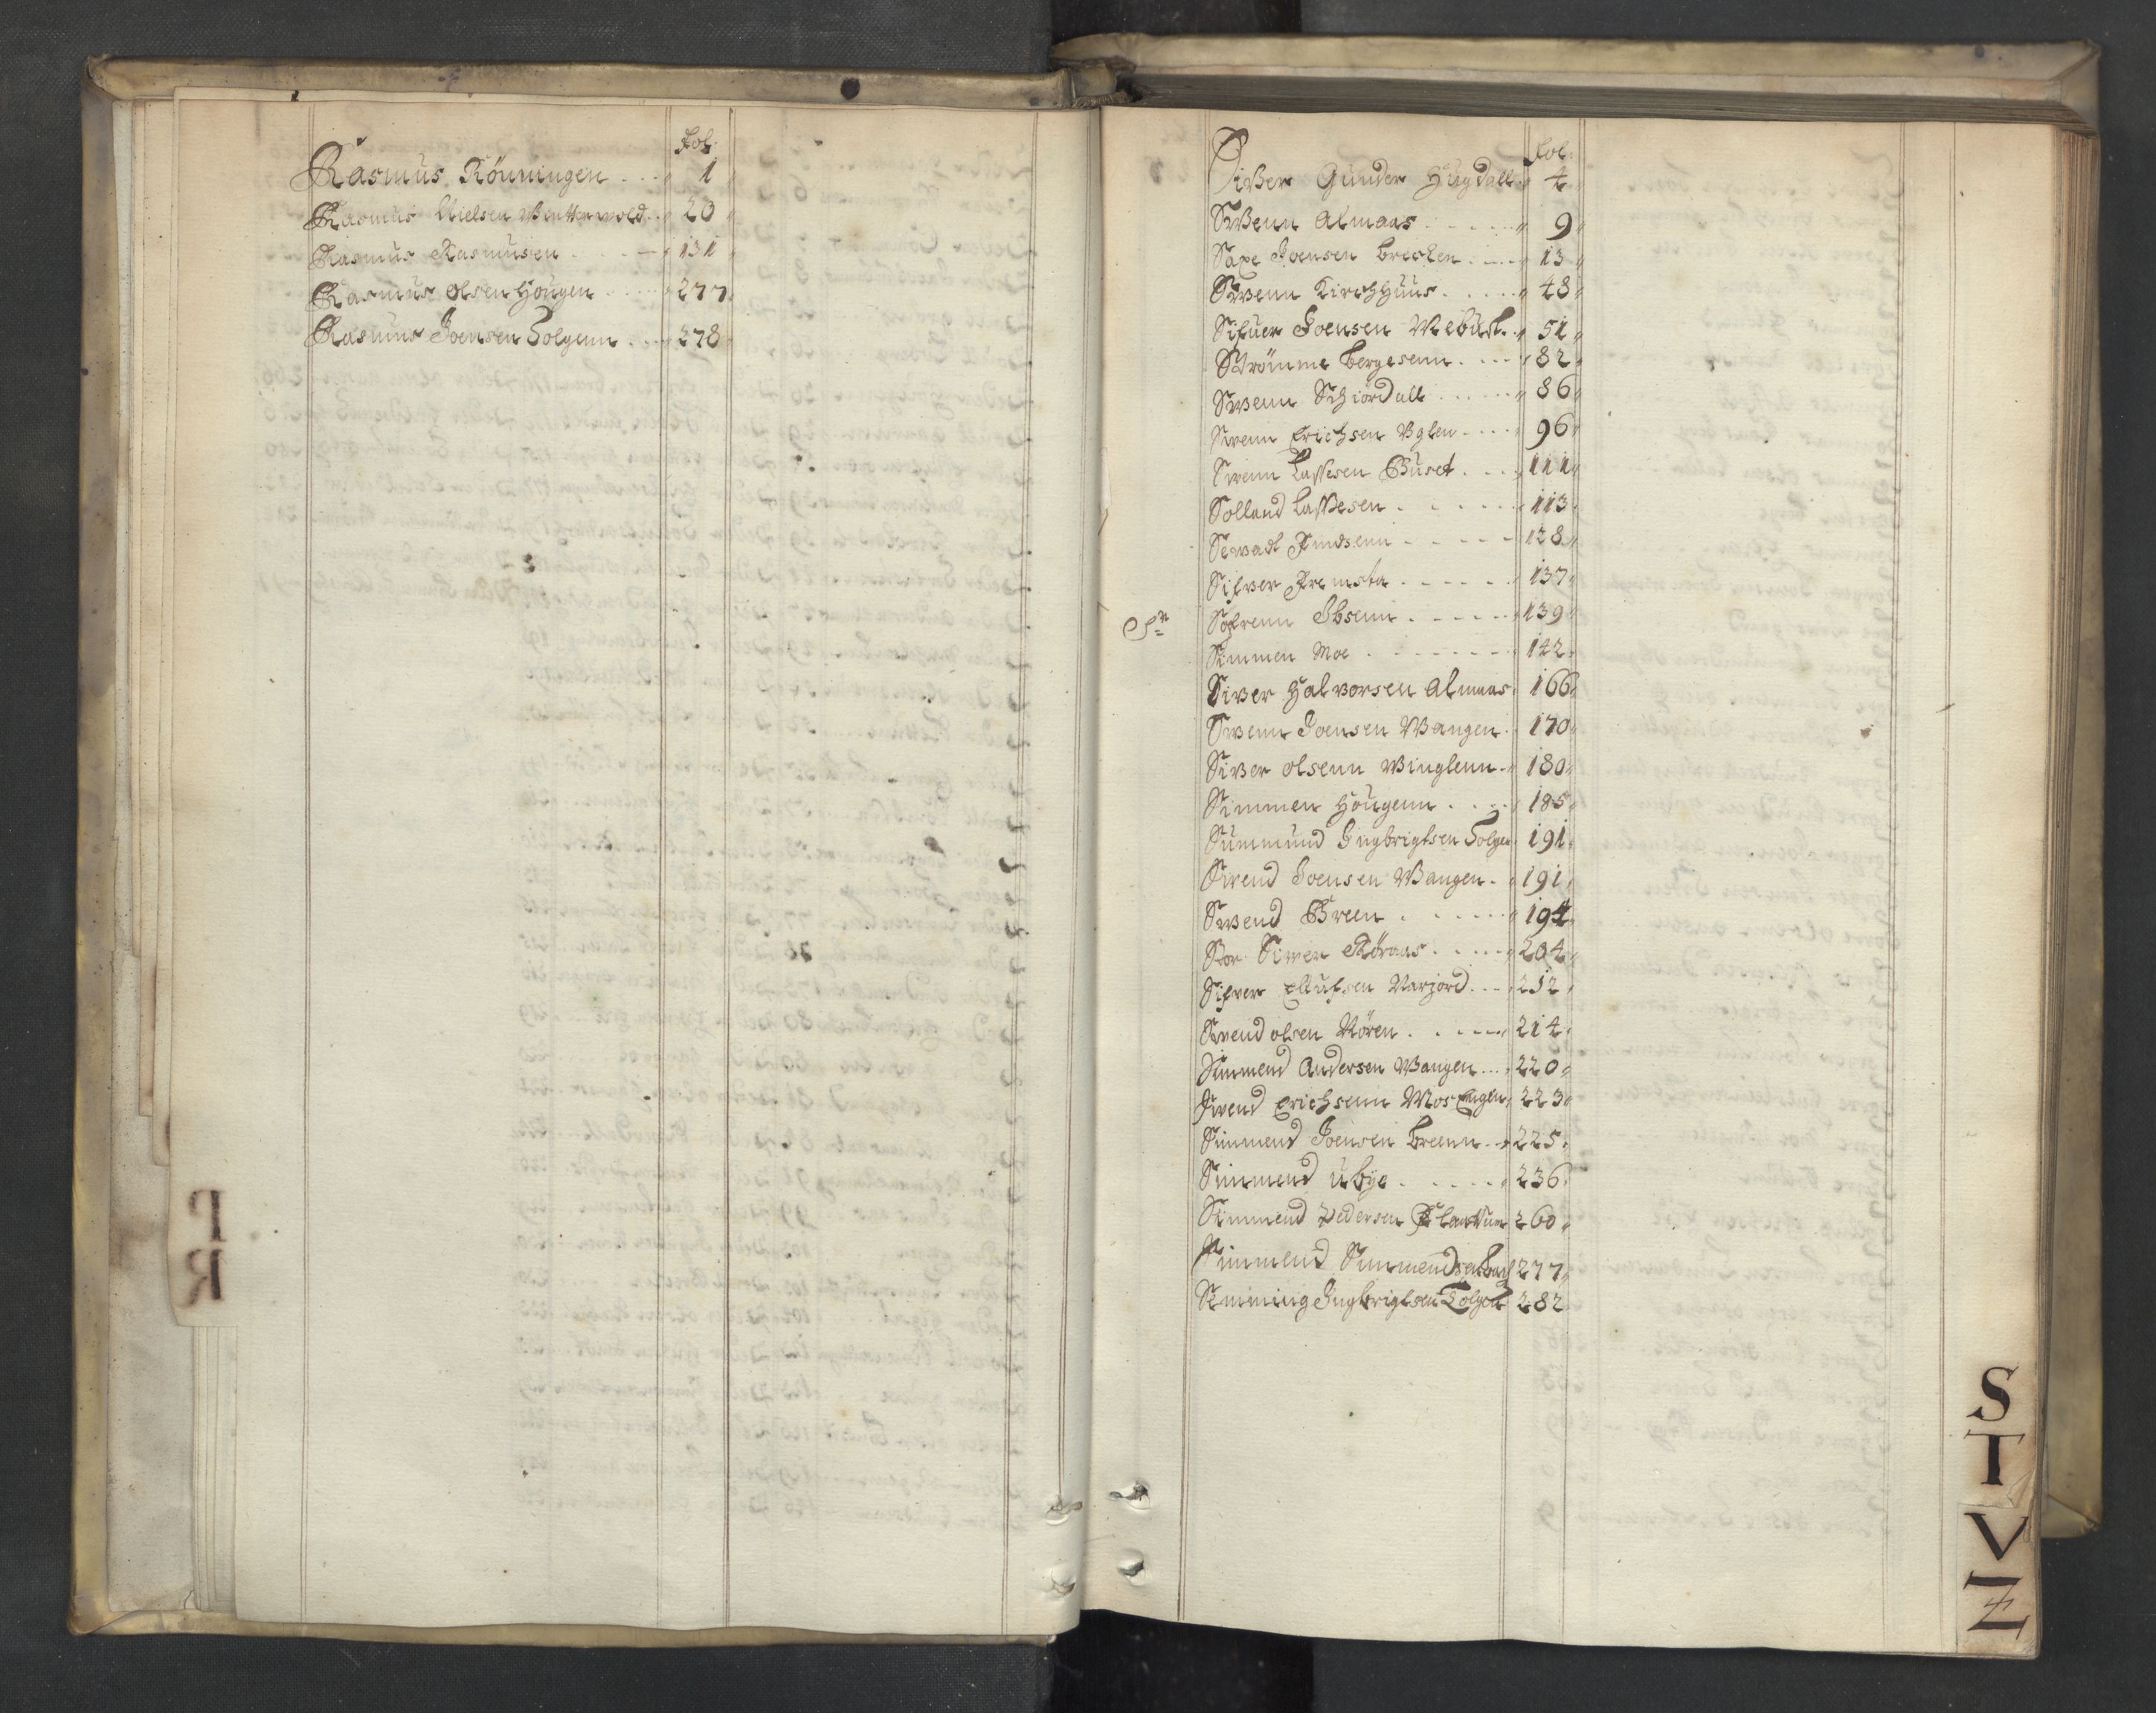 Fol:
Rasmus Rönningen 1
Rasmus Nielsen 20
Rasmus Rasmusen 131
Rasmus olsen Hougen 277
Rasmus Joensen Tolgenn 278
P
R
Fol:
Siver Gunder Hugdall 4
Swenn Almaas 9
Saxe Joensen Brecken 13
Swenn Kirchhuus 48
Sifuer Joensen Mebust 51
Strömme Bergesenn 82
Swenn Schiördall 86
Swenn Erichsen Vglen 96
Swenn Lassesen Buset 111
Solland Lassesen 113
Sewadt 128
Sifver Fremsta 137
Sn
Söfrenn Ibsenn 139
Simmen Moe 142
Siver Halvorsen Almaas 166
Swenn Joensen Wangen 170
Siver olsenn Winglenn 180
Simmen Hougenn 185
Summund Ingbrigtsen Tolgen 191
Svend Joensen Wangen 191
Swend Breen 194
Stor Siwer Röraas 204
Sifver Ellufsen Narjord 212
Svend olsen Nören 214
Simmend Andersen Wangen 220
Svend Erichsenn Mos Engen 223
Simmend Joensen Breenn 225
Simmend Ubye 236
Simmend Pedersen 260
Simmend Simmendsen 277
Semming Ingbrigtsen Tolgen 282
S
T
V
Z